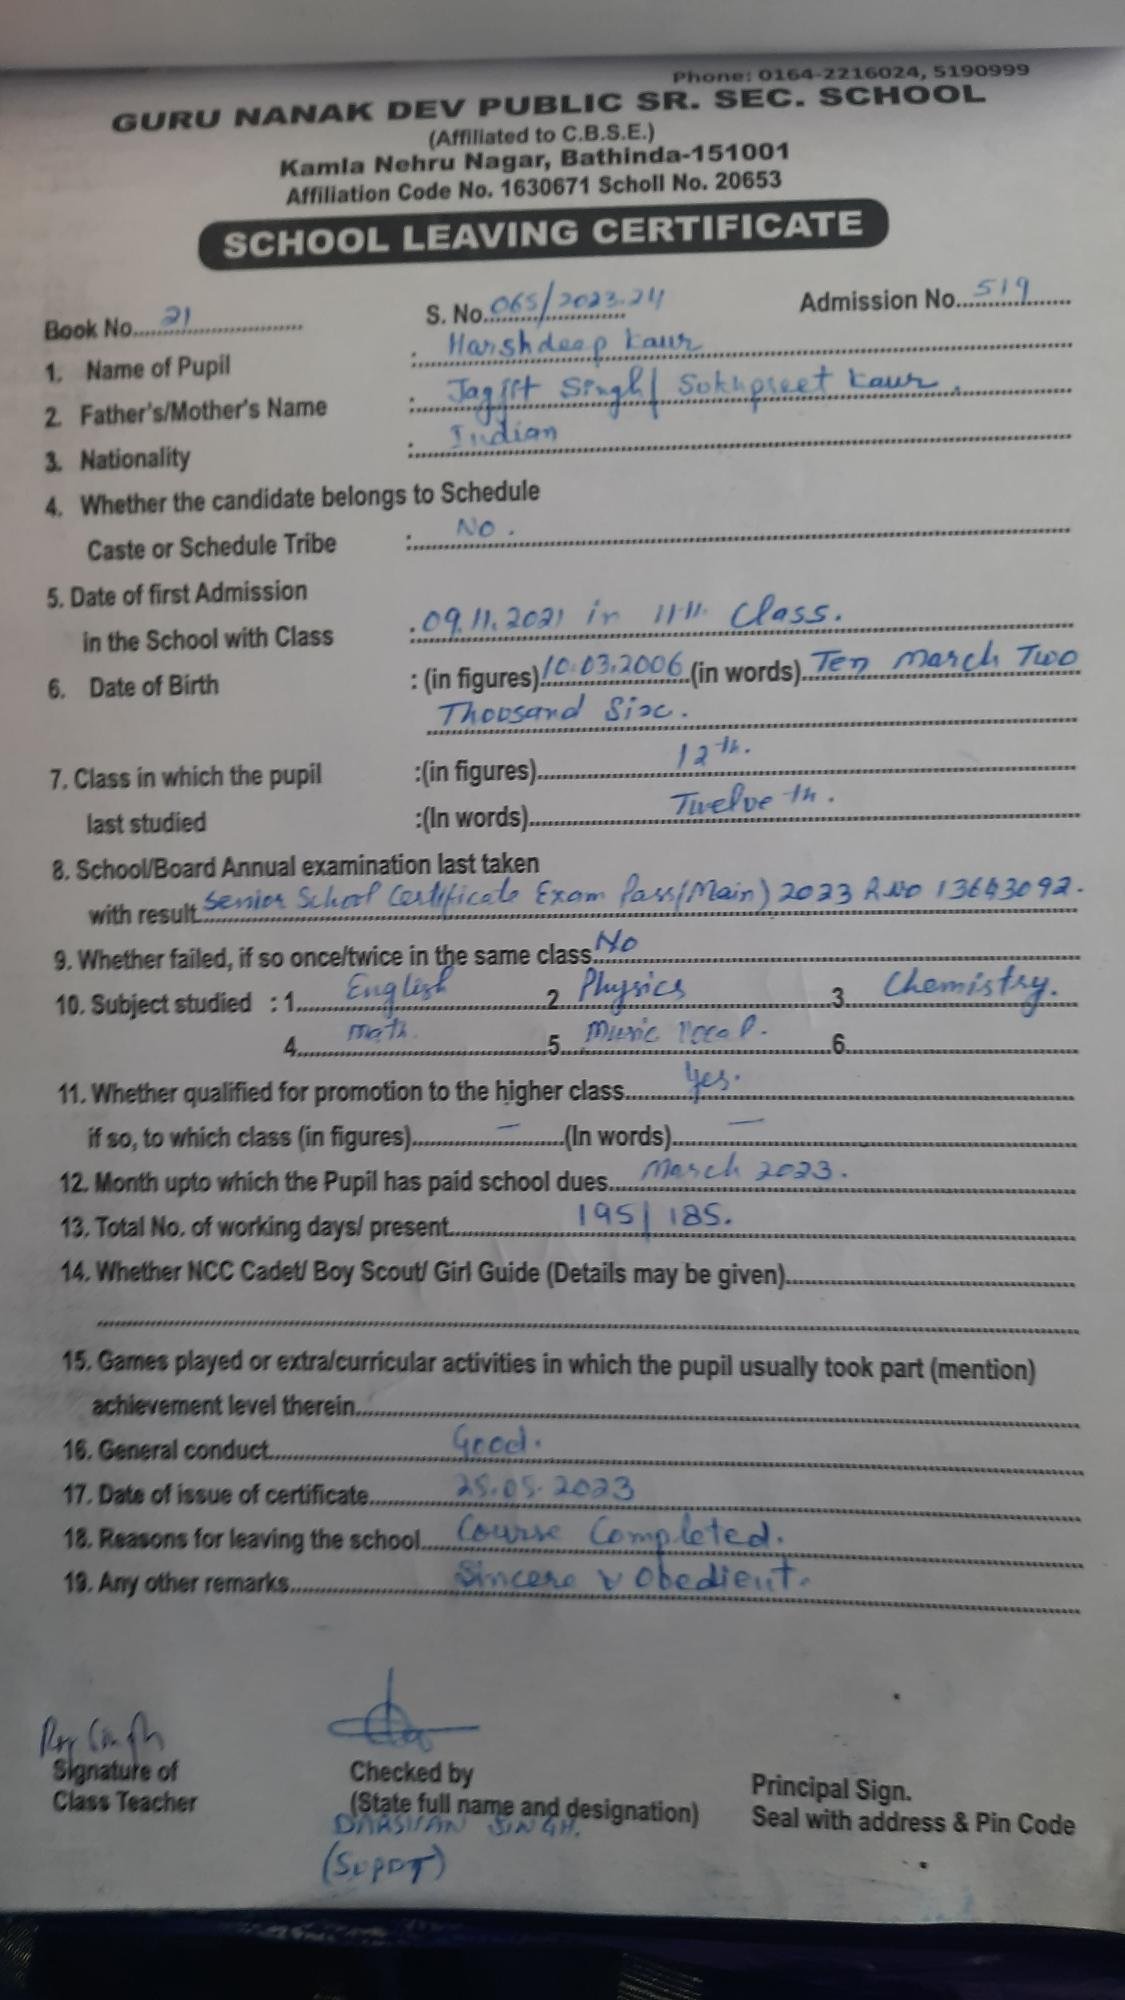 Phone: 0164-2216024, 5190999
GURU NANAK DEV PUBLIC SR. SEC. SCHOOL
(Affiliated to C.B.S.E.)
Kamla Nehru Nagar, Bathinda-151001
Affiliation Code No. 1630671 Scholl No. 20653
SCHOOL LEAVING CERTIFICATE
Book No. 21 S. No. 065/2023.24 Admission No. 519
1. Name of Pupil : Harshdeep Kaur
2. Father's/Mother's Name : Jagjit Singh/ Sukhpreet Kaur.
3. Nationality : Indian
4. Whether the candidate belongs to Schedule
Caste or Schedule Tribe : No.
5. Date of first Admission
in the School with Class : 09.11.2021 in Class.
6. Date of Birth : (in figures) 10.03.2006 (in words) Ten March Two
Thousand Six.
7. Class in which the pupil :(in figures) 12th.
last studied :(In words) Twelveth.
8. School/Board Annual examination last taken
with result Senior School Certificate Exam Pass(Main) 2023 R.No 13643092.
9. Whether failed, if so once/twice in the same class. No
10. Subject studied : 1. English 2. Physics 3. Chemistry.
4. Math. 5. Music Vocal. 6.
11. Whether qualified for promotion to the higher class. Yes.
if so, to which class (in figures) — (In words) —
12. Month upto which the Pupil has paid school dues. March 2023.
13. Total No. of working days/ present. 195/ 185.
14. Whether NCC Cadet/ Boy Scout/ Girl Guide (Details may be given)
15. Games played or extra/curricular activities in which the pupil usually took part (mention)
achievement level therein.
16. General conduct. Good.
17. Date of issue of certificate. 25.05.2023
18. Reasons for leaving the school. Course Completed.
19. Any other remarks. Sincere & Obedient.
Singh
Signature of Checked by Principal Sign.
Class Teacher (State full name and designation) Seal with address & Pin Code
DARSHAN SINGH.
(SUPDT)